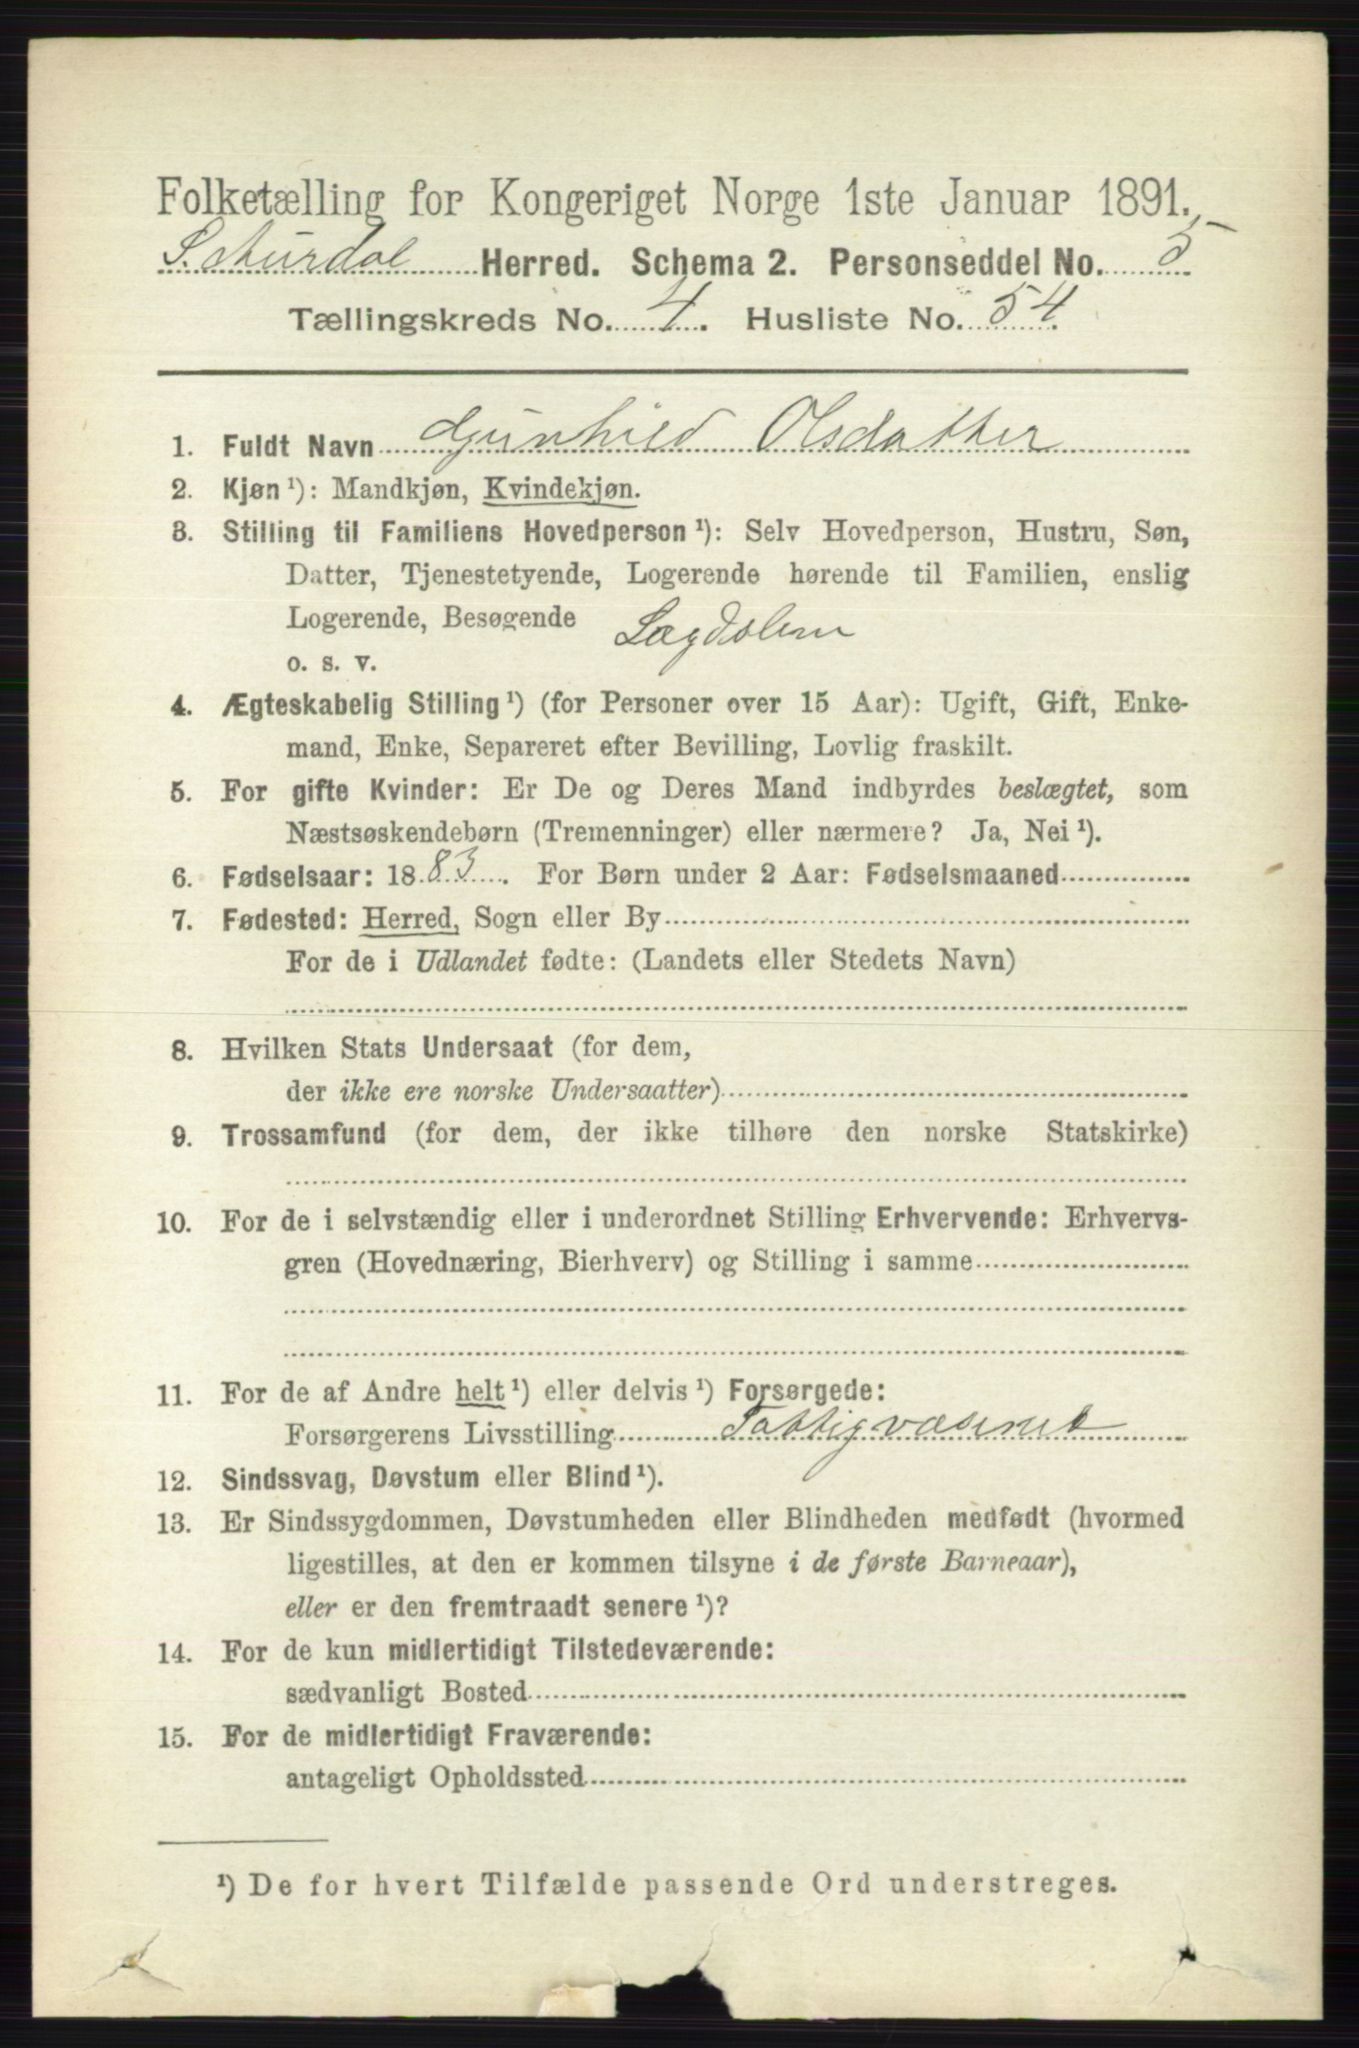 Folketælling for Kongeriget Norge 1ste Januar 1891.
S. Aurdal Herred. Schema 2. Personseddel No. 5
Tællingskreds No. 4. Husliste No. 54.
1. Fuldt Navn Gunhild Olsdatter
2. Kjøn ¹): Mandkjøn, Kvindekjøn.
3. Stilling til Familiens Hovedperson ¹): Selv Hovedperson, Hustru, Søn,
Datter, Tjenestetyende, Logerende hørende til Familien, enslig
Logerende, Besøgende Lægdslem
o. s. v.
4. Ægteskabelig Stilling ¹) (for Personer over 15 Aar): Ugift, Gift, Enke-
mand, Enke, Separeret efter Bevilling, Lovlig fraskilt.
5. For gifte Kvinder: Er De og Deres Mand indbyrdes beslægtet, som
Næstsøskendebørn (Tremenninger) eller nærmere? Ja, Nei ¹).
6. Fødselsaar: 1883. For Børn under 2 Aar: Fødselsmaaned
7. Fødested: Herred, Sogn eller By
For de i Udlandet fødte: (Landets eller Stedets Navn)
8. Hvilken Stats Undersaat (for dem,
der ikke ere norske Undersaatter)
9. Trossamfund (for dem, der ikke tilhøre den norske Statskirke)
10. For de i selvstændig eller i underordnet Stilling Erhvervende: Erhvervs-
gren (Hovednæring, Bierhverv) og Stilling i samme
11. For de af Andre helt ¹) eller delvis ¹) Forsørgede:
Forsørgerens Livsstilling Fattigvæsenet
12. Sindssvag, Døvstum eller Blind ¹).
13. Er Sindssygdommen, Døvstumheden eller Blindheden medfødt (hvormed
ligestilles, at den er kommen tilsyne i de første Barneaar),
eller er den fremtraadt senere ¹)?
14. For de kun midlertidigt Tilstedeværende:
sædvanligt Bosted
15. For de midlertidigt Fraværende:
antageligt Opholdssted
¹) De for hvert Tilfælde passende Ord understreges.